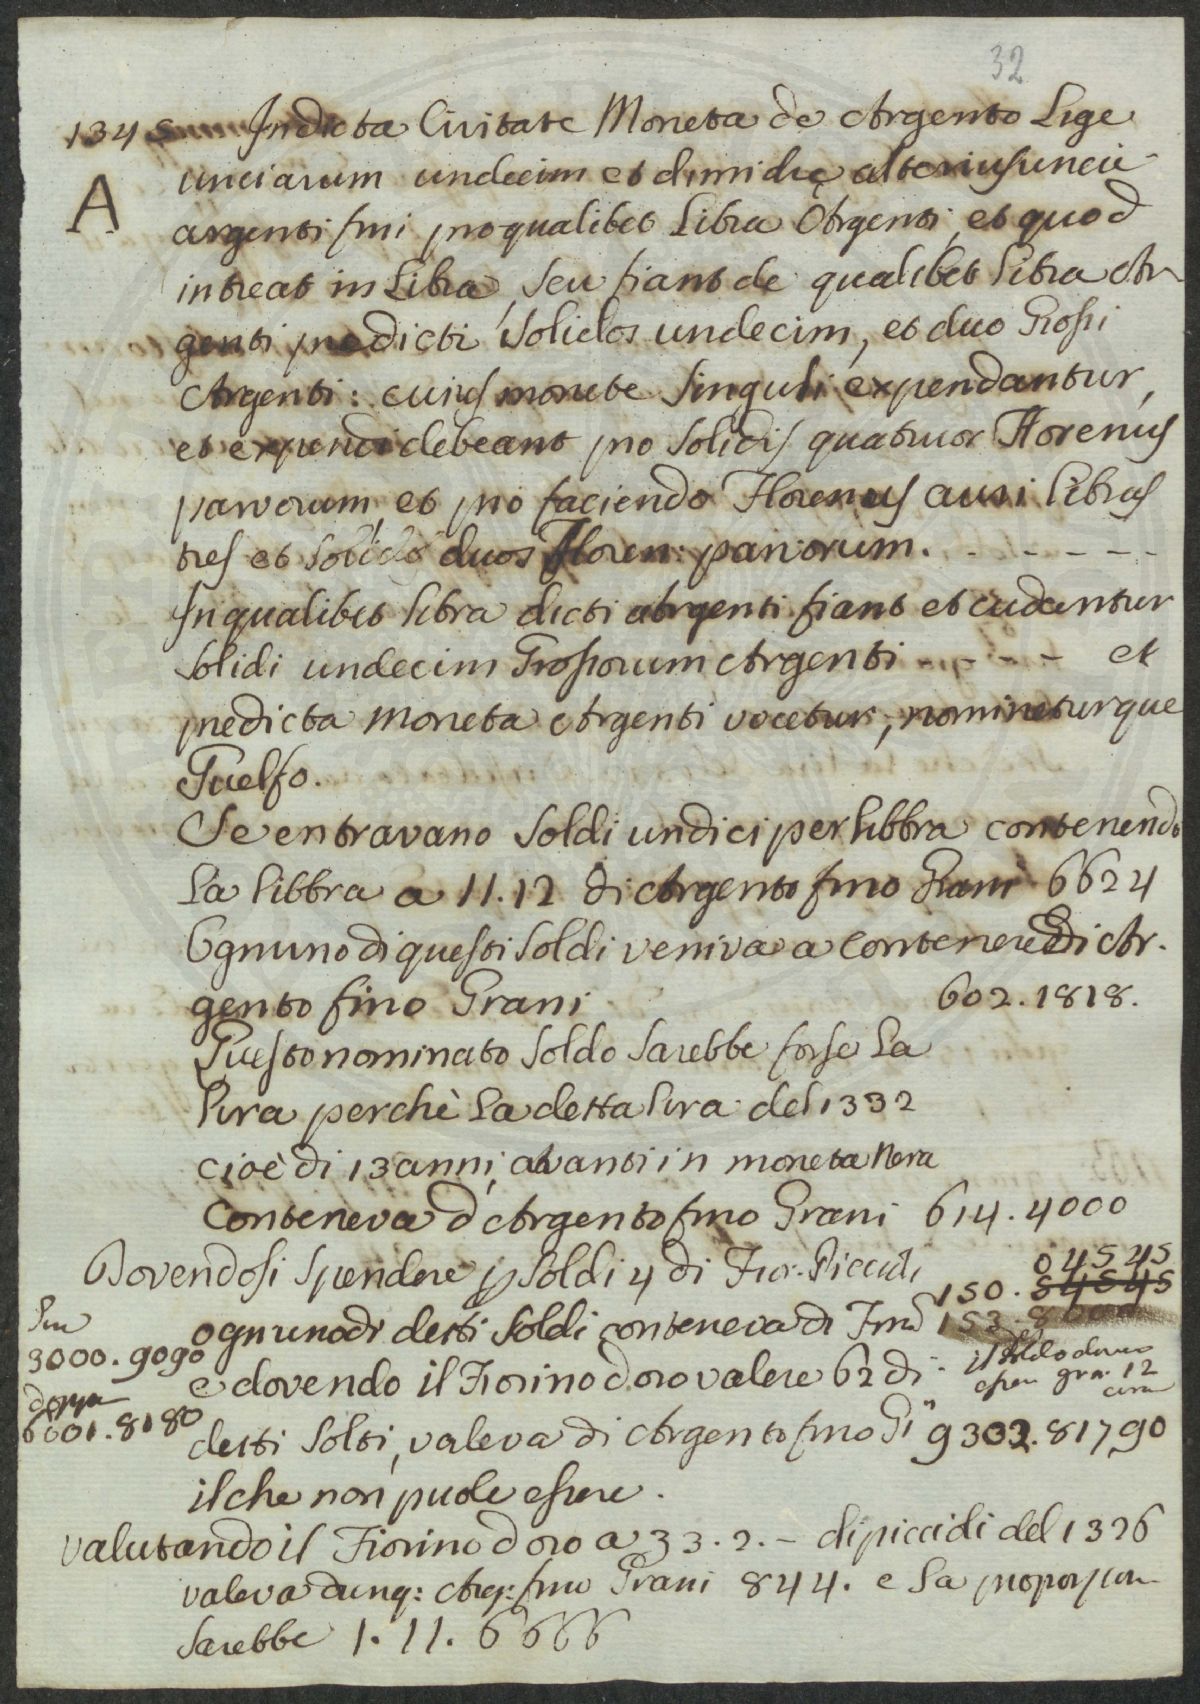 32
1345 In dicta Civitate Moneta de Argento Lige
A unciarum undecim et dimidie alterius uncie
argenti fini pro qualibet Libra Argenti, et quod
intreat in Libra, seu fiant de qualibet Libra Ar
genti predicti Solidos undecim, et duo Grossi
Argenti: cuius monete singuli expendantur,
et expendi debeant pro Solidis quatuor Florenus
parvorum, et pro faciendo Florenus auri Libras
tres et Solidos duos Floren: parvorum. - - - - -
In qualibet libra dicti argenti fiant et cudantur
Solidi undecim Grossorum Argenti - - - - et
predicta Moneta Argenti vocetur, nomineturque
Guelfo.
Se entravano Soldi undici per libbra contenendo
La libbra a 11.12 di Argento fino Grani 6624
Ognuno di questi Soldi veniva a contenere di Ar-
gento fino Grani 602.1818.
Questo nominato Soldo Sarebbe forse La
lira perchè La detta lira del 1332
cioè di 13 anni avanti in moneta Nera
Conteneva d'Argento fino Grani 614.4000
Dovendosi Spendere p Soldi 4 di Fior: Piccioli
04545
150. 54545
ognuno di detti Soldi conteneva di Fino 153.600
il Soldo deve
esser gra: 12
e dovendo il Fiorino d'oro valere 62 di
3000.9090
6001.8180
detti Solti, valeva di Argento fino Gi 9302.81790
il che non puole essere.
Valutando il Fiorino d'oro a 33.2.- di piccioli del 1326
valeva dunq: Arg: fino Grani 844. e La proporzion
Sarebbe 1.11.6666